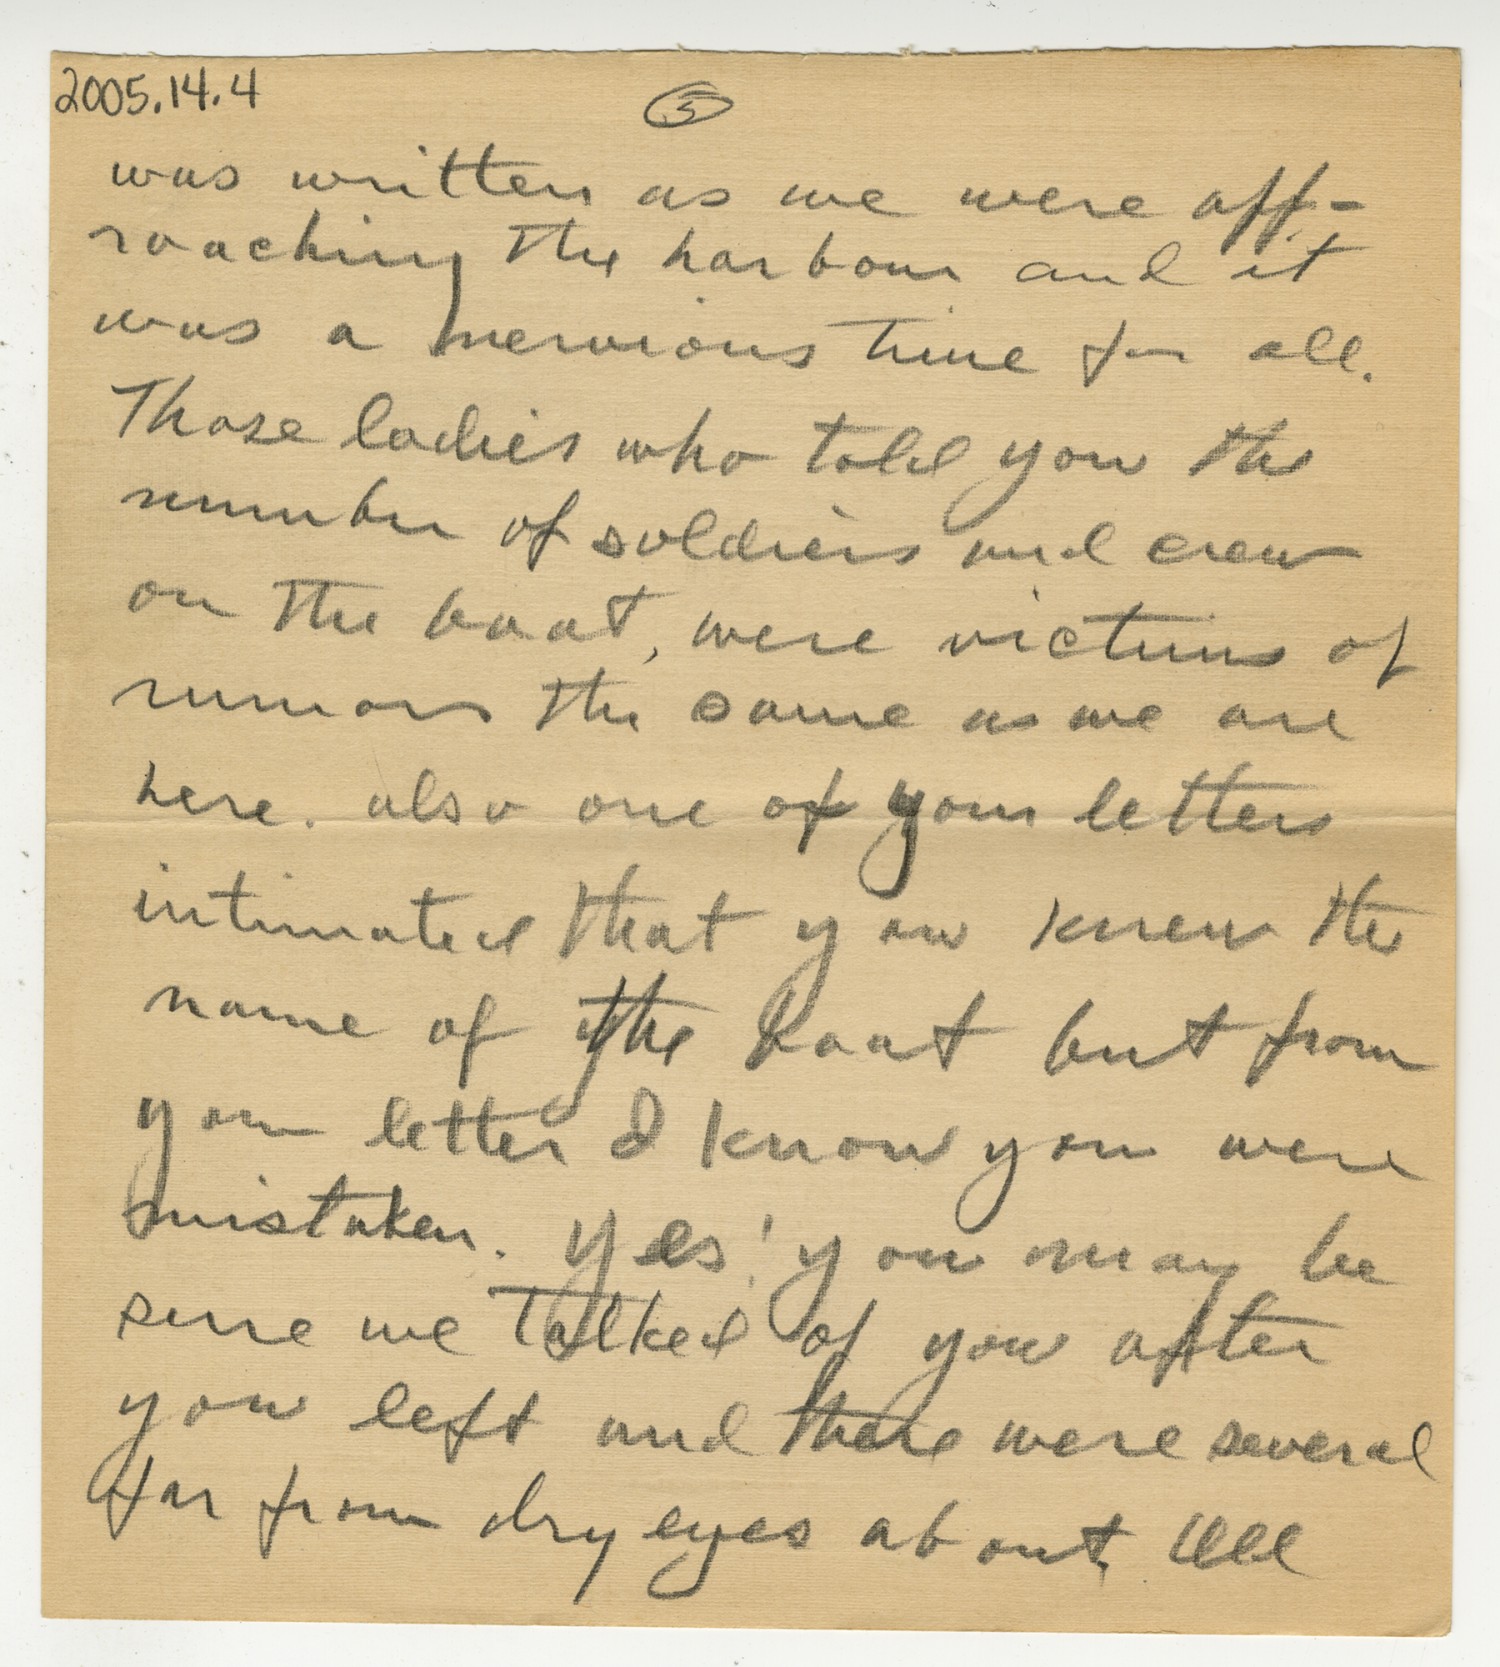 2005.14.4
5
was written as we were app-
roaching the harbour and it
was a nervious time for all.
Those ladies who told you the
number of soldiers and crew
on the boat, were victims of
rumors the same as we are
here. also one of your letters
intimated that you knew the
name of the boat but from
your letter I know you were
mistaken. Yes! you may be
sure we talked of you after
you left and there were several
far from dry eyes about. Well